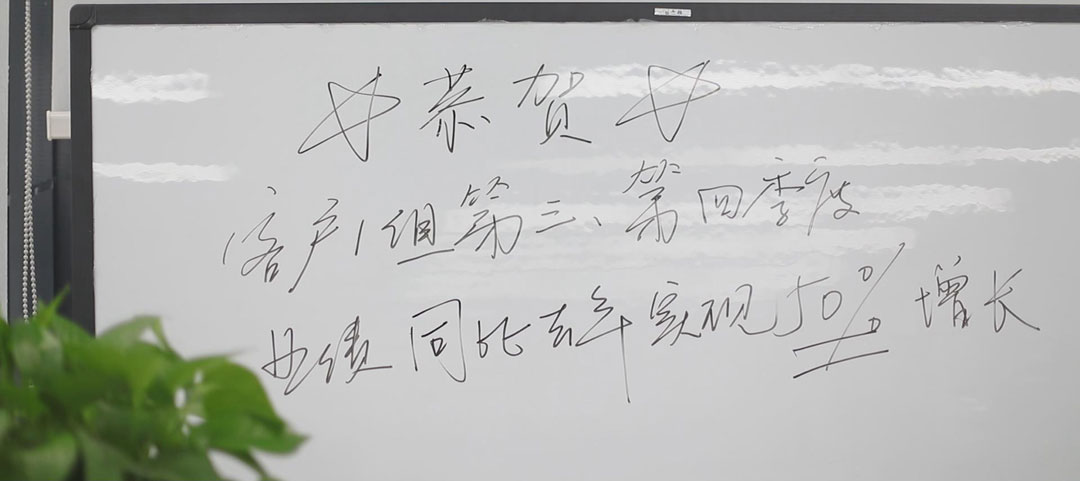 ☆恭贺☆
客户1组第三、第四季度
业绩同比去年实现50%增长